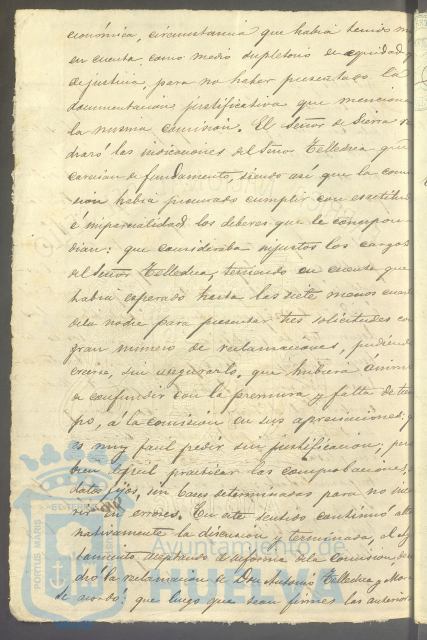 económica, circunstancia que habia tenido
en cuenta, como medio supletorio en equidad y
dejusticia, para no haber presentado la
documentacion justificativa que menciona
la misma comision. El Señor de Sierra
las indicaciones del Señor Telledea que
carecian de fundamento, siendo asi que la comi
sion habia procurado cumplir con exactitud
é imparcialidad los deberes que le correspon
dian: que consideraba injustos los cargos
del Señor Telledea, teniendo en cuenta que
habia esperado hasta las siete menos cuar
dela noche para presentar tres solicitudes con
gran numero de reclamaciones, pudiendo
creerse, sin asegurarlo, que hubiera ánimo
de confundir con la premura y falta de tiem
po, á la comision en sus apreciaciones: q
es muy facil pedir sin justificacion; pero
bien dificil practicar las comprobaciones,
datos fijos, en casos determinados para no incu
rrir en errores. En este sentido continuó alter
nativamente la discusion y terminada, el
la reclamacion de Don Antonio Telledea y
Se acordó: que luego que sean firmes los anteriores
PORTUS MARIS
Ayuntamiento de
HUELVA